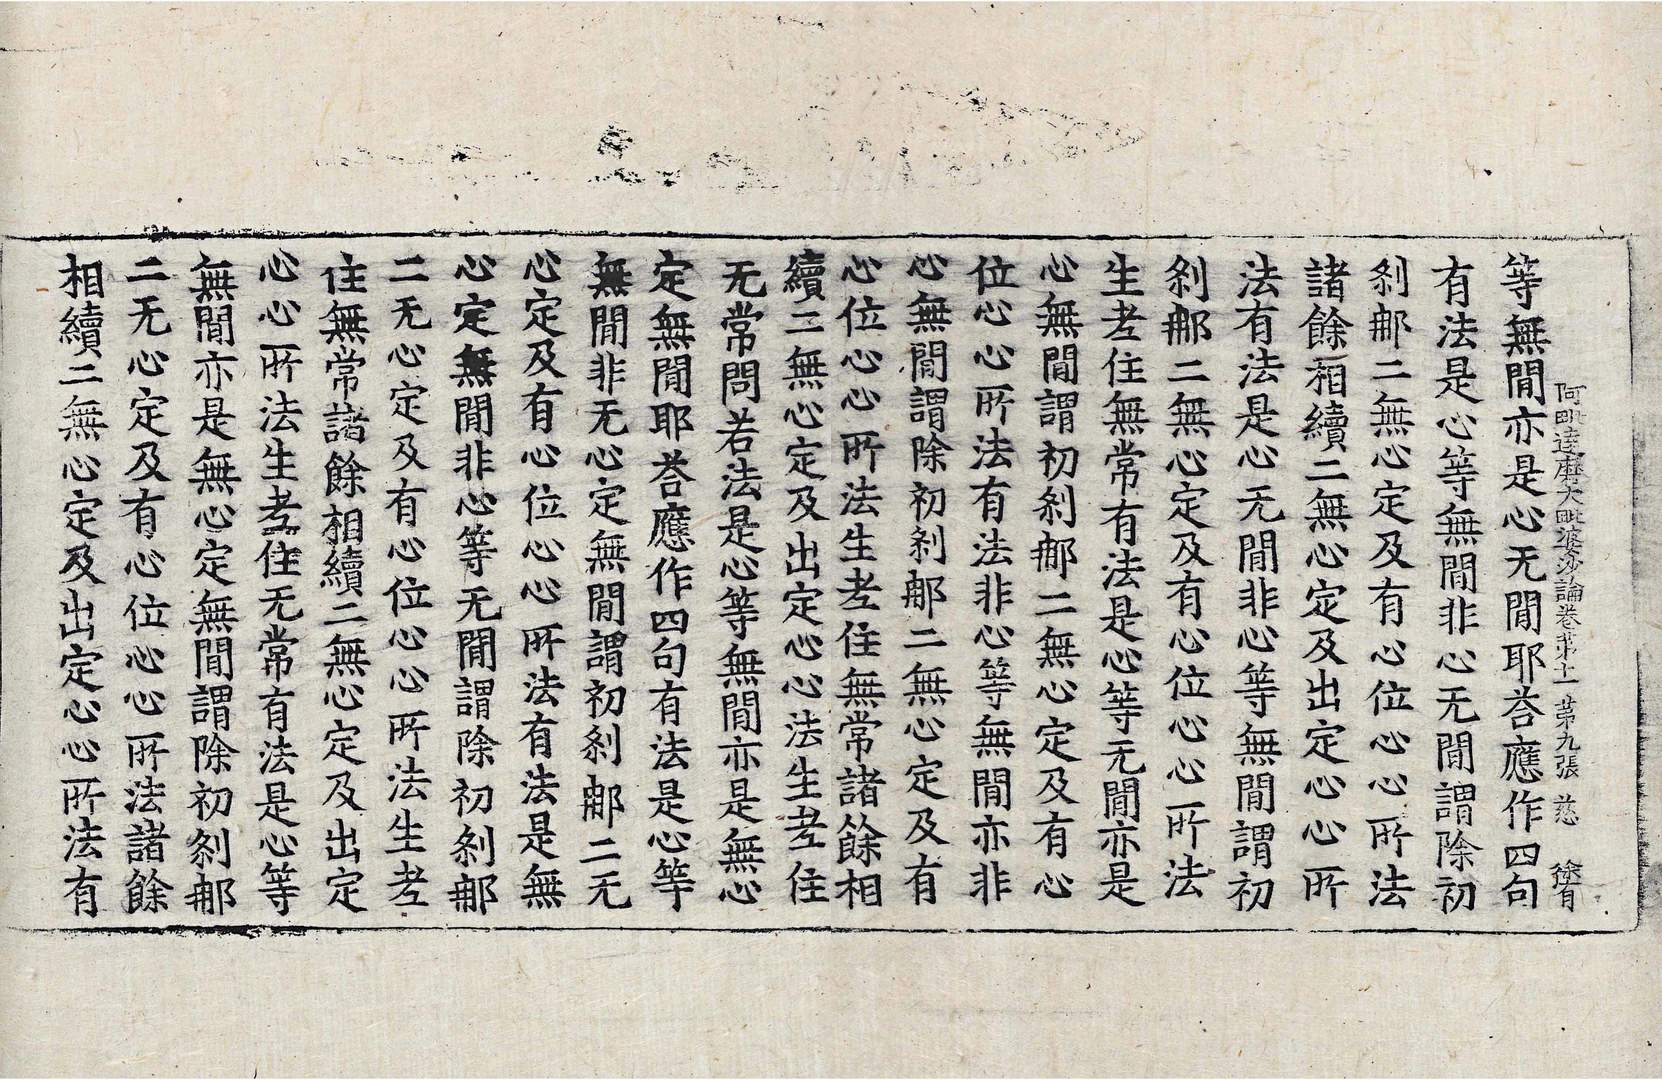 阿毗達磨大毗婆沙論卷苐十一 苐九張 慈 徐有
等無閒亦是心无閒耶荅應作四句
有法是心等無閒非心无閒謂除初
刹郍二無心定及有心位心心所法
諸餘相續二無心定及出定心心所
法有法是心无閒非心等無閒謂初
刹郍二無心定及有心位心心所法
生老住無常有法是心等无閒亦是
心無閒謂初刹郍二無心定及有心
位心心所法有法非心等無閒亦非
心無閒謂除初刹郍二無心定及有
心位心心所法生老住無常諸餘相
續二無心定及出定心心法生老住
无常問若法是心等無閒亦是無心
定無閒耶荅應作四句有法是心等
無閒非无心定無閒謂初刹郍二无
心定及有心位心心所法有法是無
心定無閒非心等无閒謂除初刹郍
二无心定及有心位心心所法生老
住無常諸餘相續二無心定及出定
心心所法生老住无常有法是心等
無閒亦是無心定無閒謂除初刹郍
二无心定及有心位心心所法諸餘
相續二無心定及出定心心所法有